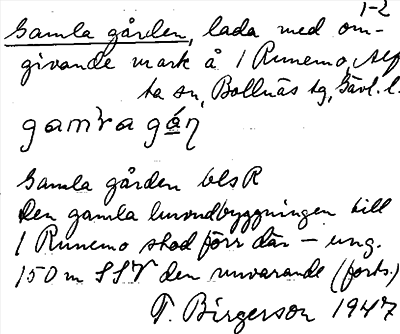 1-2
Gamla gården, lada med om-
givande mark å 1 Runemo, Alf
ta sn, Bollnäs tg, Gävl. l.
gamra gán
Gamla gården bls R
Den gamla huvudbyggningen till
1 Runemo stod förr där – ung.
150 m SSV den nuvarande (forts.)
T. Birgerson 1947